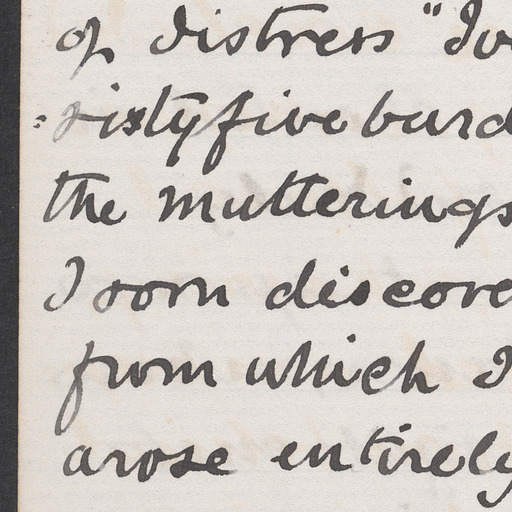 of distress "Two
=sixtyfive burd
the mutterings
I soon discove
from which I
arose entirely